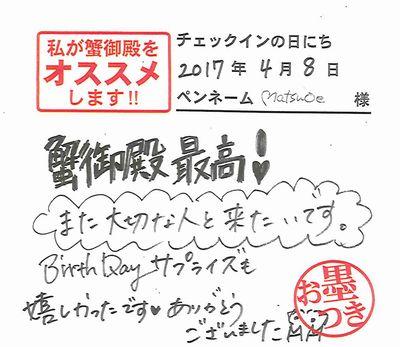 私が蟹御殿を
オススメ
します!!
チェックインの日にち
2017 年 4 月 8 日
ペンネーム Matsuoe 様
蟹御殿 最高!
また大切な人と来たいです。
Birth Day サプライズも
嬉しかったです♥ ありがとう
ございました
お墨つき